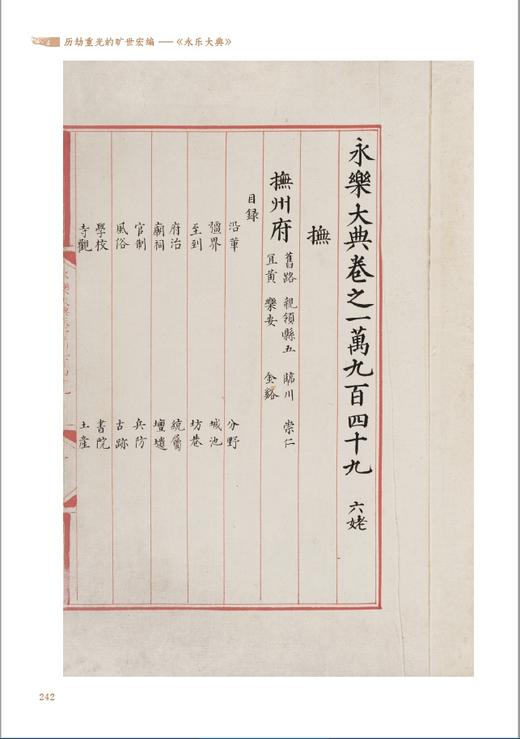 历劫重光的旷世宏编 ——《永乐大典》
永樂大典卷之一萬九百四十九 六姥
撫
撫州府 舊路 親領縣五 臨川 崇仁
宜黃 樂安 金谿
目録
沿革 分野
彊界 城池
至到 坊巷
府治 統屬
廟祠 壇壝
官制 兵防
風俗 古跡
學校 書院
寺觀 土產
242